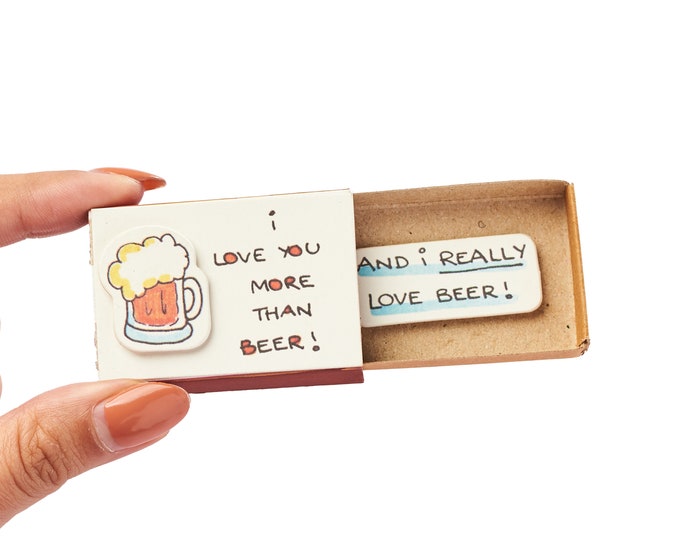 i
LOVE YOU
MORE
THAN
BEER!
AND i REALLY
LOVE BEER!